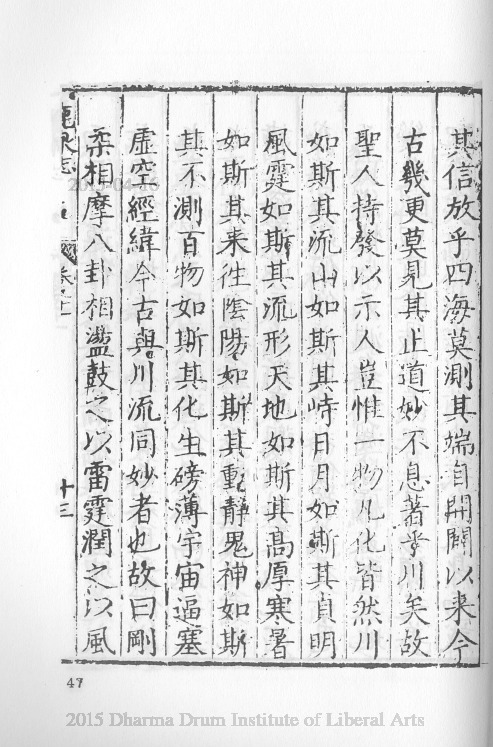 其信放乎四海莫測其端自開闢以来今
古幾更莫見其止道妙不息著乎川矣故
聖人持發以示人豈惟一物凡化皆然川
如斯其流山如斯其峙日月如斯其貞明
風霆如斯其流形天地如斯其高厚寒暑
如斯其来徃陰陽如斯其動靜鬼神如斯
其不測百物如斯其化生磅薄宇宙逼塞
虛空經緯今古與川流同妙者也故曰剛
柔相摩八卦相盪鼓之以雷霆潤之以風
十三
47
2015 Dharma Drum Institute of Liberal Arts